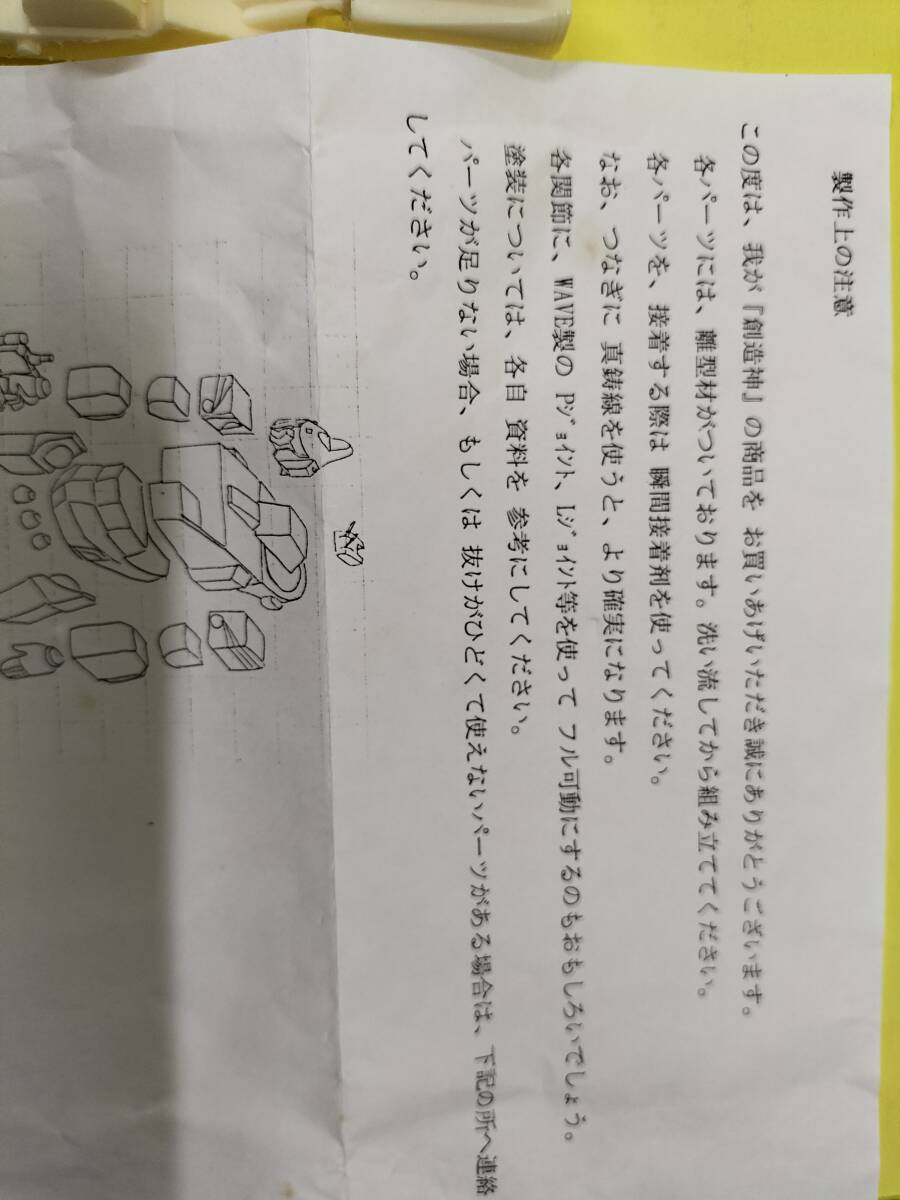 製作上の注意
この度は、我が『創造神』の商品を お買いあげいただき誠にありがとうございます。
各パーツには、離型材がついております。洗い流してから組み立ててください。
各パーツを、接着する際は 瞬間接着剤を使ってください。
なお、つなぎに 真鋳線を使うと、より確実になります。
各関節に、WAVE製の Pジョイント、Lジョイント等を使って フル可動にするのもおもしろいでしょう。
塗装については、各自 資料を 参考にしてください。
パーツが足りない場合、もしくは 抜けがひどくて使えないパーツがある場合は、下記の所へ連絡
してください。